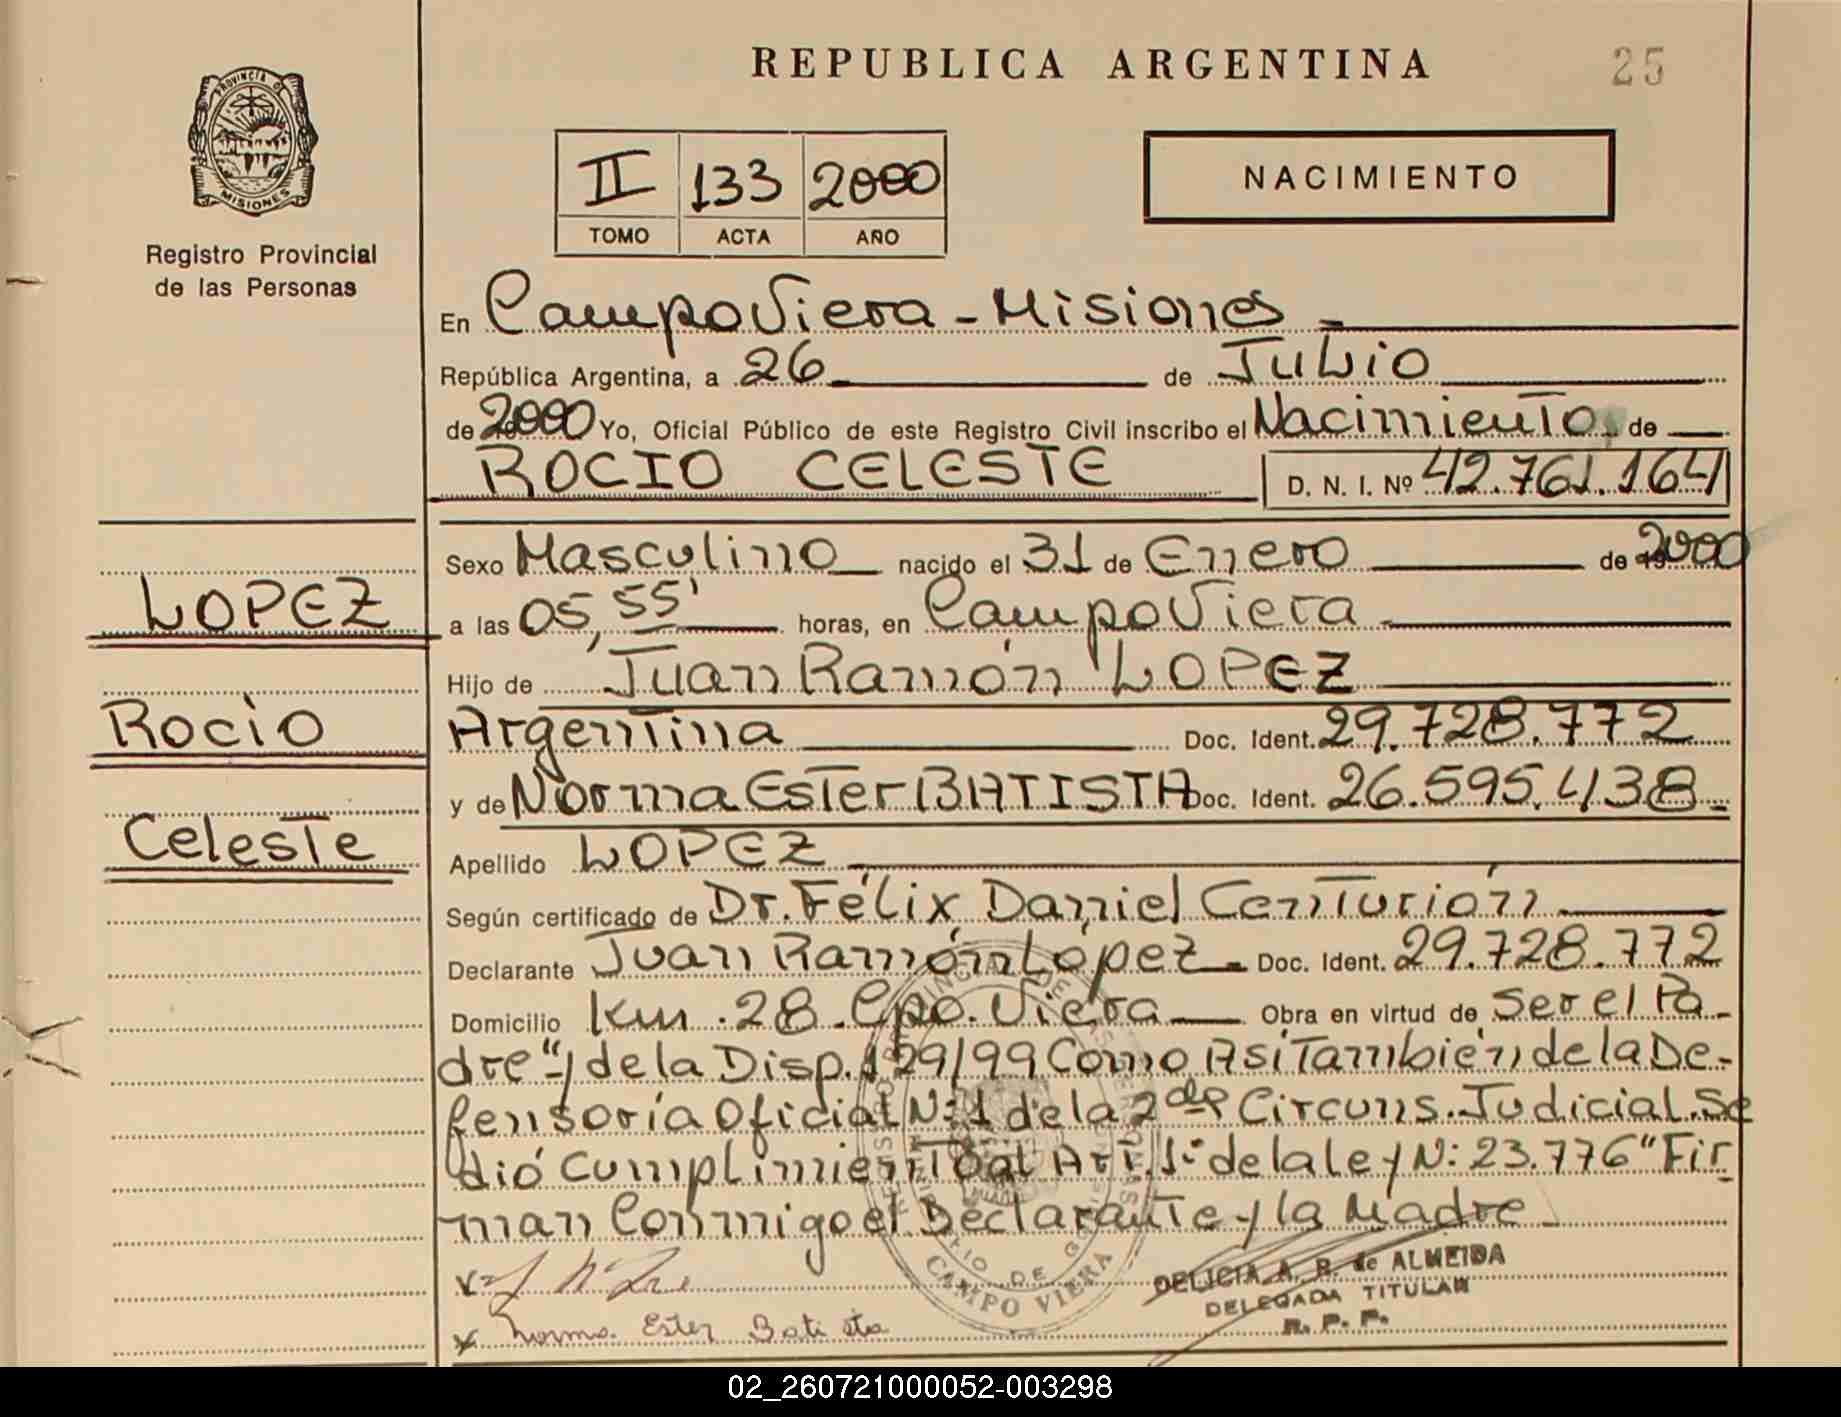 REPUBLICA ARGENTINA
25
PROVINCIA D
MISIONES
Registro Provincial
de las Personas
II 133 2000
TOMO ACTA AÑO
NACIMIENTO
En Campo Viera - Misiones -
República Argentina, a 26 de Julio
de 2000 Yo, Oficial Público de este Registro Civil inscribo el Nacimiento de
ROCIO CELESTE D. N. I. Nº 42.761.164
Sexo Masculino nacido el 31 de Enero de 2000
LOPEZ
a las 05,55' horas, en Campo Viera -
Hijo de Juan Ramón LOPEZ
Rocio
Argentina Doc. Ident. 29.728.772
y de Norma Ester BATISTA Doc. Ident. 26.595.438 -
Celeste
Apellido LOPEZ
Según certificado de Dr. Félix Daniel Centurión
Declarante Juan Ramón López - Doc. Ident. 29.728.772
Domicilio Km. 28. Cpo. Viera Obra en virtud de Ser el Pa-
dre "y de la Disp. 129/99 Como Asi También de la De-
fensoría Oficial Nº 1 de la 2da Circuns. Judicial. Se
dió Cumplimiento al Art. 1º de la ley N: 23.776" Fir-
man Conmigo el Declarante y la Madre -
Norma Ester Batista
CAMPO VIERA
DELICIA A. R. de ALMEIDA
DELEGADA TITULAR
R. P. P.
02_260721000052-003298